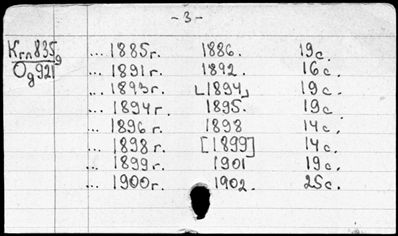 - 3 -
Кгл835g
Og921
... 1885г. 1886. 19с.
... 1891г. 1892. 16с.
... 1893г. ⌊1894⌋ 19с.
... 1894г. 1895. 19с.
... 1896г. 1898 14с.
... 1898г. [1899] 14с.
... 1899г. 1901 19с.
... 1900г. 1902. 25с.